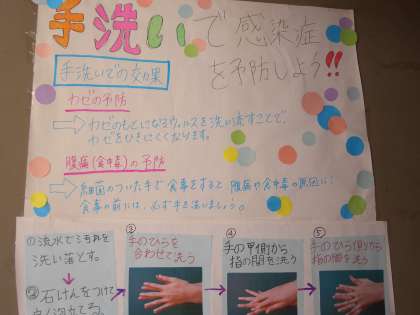 手洗いで感染症
を予防しよう!!
手洗いでの効果
カゼの予防
カゼのもとになるウィルスを洗い流すことで、
カゼをひきにくくなります。
腹痛(食中毒)の予防
細菌のついた手で食事をすると腹痛や食中毒の原因に!
食事の前には、必ず手を洗いましょう。
①流水で汚れを
洗い落とす。
②石けんをつけて
③
手のひらを
合わせて洗う
④
手の甲側から
指の間を洗う
⑤
手のひら側から
指の間を洗う